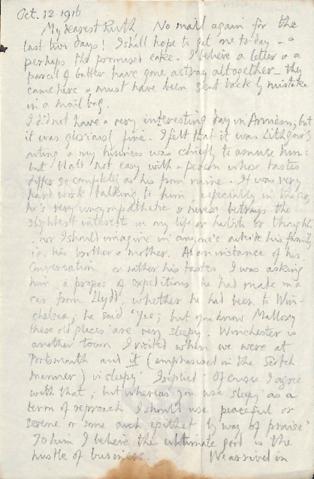 Oct. 12 1916
My dearest Ruth No mail again for the
last two days! I shall hope to get one to-day - &
perhaps the promised cake. I believe a letter & a
parcel of butter have gone astray altogether - they
came here & must have been sent back by mistake
in a mail bag.
I did not have a very interesting day in Amiens, but
it was glorious fine. I felt that it was Lithgow's
outing & my business was chiefly to amuse him:
but that's not easy with a person whose tastes
differ so completely as his from mine. It was very
hard work talking to him, especially in
he's very unsympathetic & never betrays the
slightest interest in my life or habits or thoughts
, nor I should imagine in anyone's outside his family
i.e. his brother & mother. As an instance of his
conversation or rather his tastes I was asking
him, à propos of expeditions he had made in a
car from Lydd, whether he had been to Win-
chelsea; he said 'Yes; but you know Mallory
these old places are very sleepy. Winchester is
another town I visited when we were at
Portsmouth and it (emphasised in the Scotch
manner) is sleepy'. I replied 'Of course I agree
with that, but whereas you use sleepy as a
term of reproach I should use peaceful or
serene or some such epithet by way of praise'
To him I believe the ultimate good is the
hustle of business. We arrived in